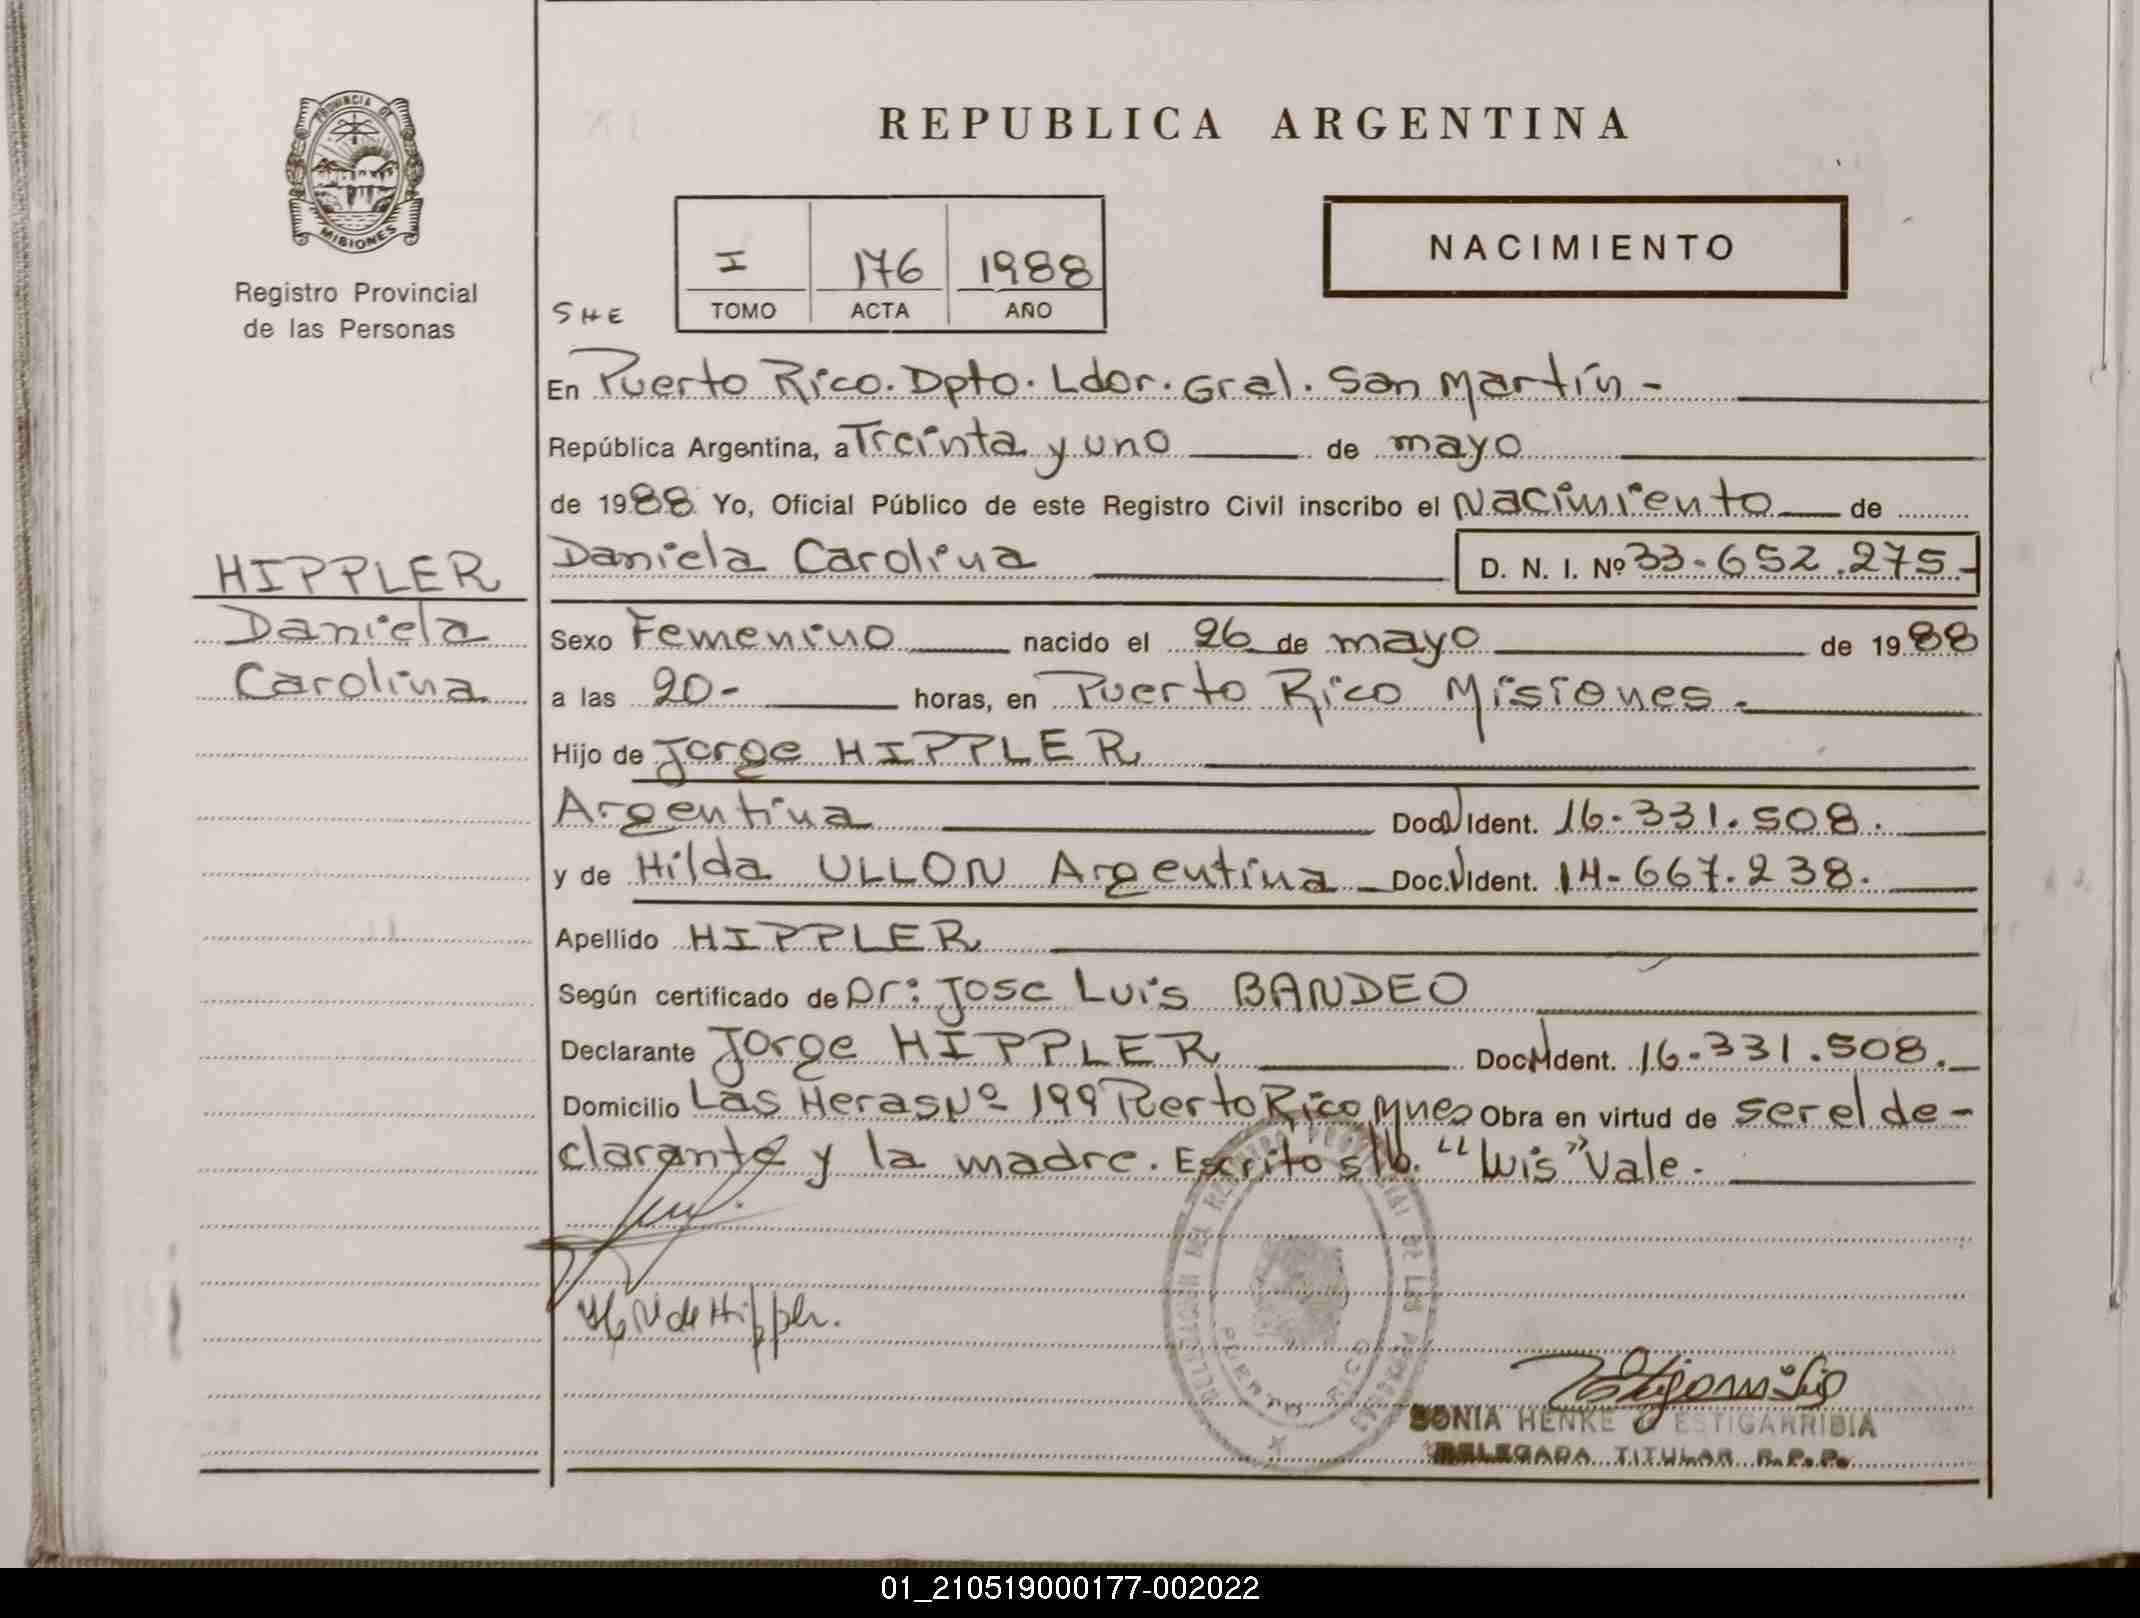 PROVINCIA DE
MISIONES
Registro Provincial
de las Personas
REPUBLICA ARGENTINA
NACIMIENTO
I 176 1988
TOMO ACTA AÑO
SHE
En Puerto Rico. Dpto. Ldor. Gral. San Martín -
República Argentina, a Treinta y uno de mayo
de 1988 Yo, Oficial Público de este Registro Civil inscribo el Nacimiento de
Daniela Carolina D. N. I. Nº 33-652.275-
HIPPLER
Daniela
Carolina
Sexo Femenino nacido el 26 de mayo de 1988
a las 20- horas, en Puerto Rico Misiones -
Hijo de Jorge HIPPLER
Argentina Doc. Ident. 16-331.508.
y de Hilda ULLON Argentina - Doc. Ident. 14-667.238.
Apellido HIPPLER
Según certificado de Dr: Jose Luis BANDEO
Declarante Jorge HIPPLER Doc. Ident. 16-331.508.
Domicilio Las Heras Nº 199 Puerto Rico Mnes Obra en virtud de ser el de-
clarante y la madre. Escrito s/b. "Luis" Vale.
H U de Hippler.
DELEGACION DEL REGISTRO PROVINCIAL DE LAS PERSONAS
PUERTO RICO
SONIA HENKE de ESTIGARRIBIA
DELEGADA TITULAR R.P.P.
01_210519000177-002022